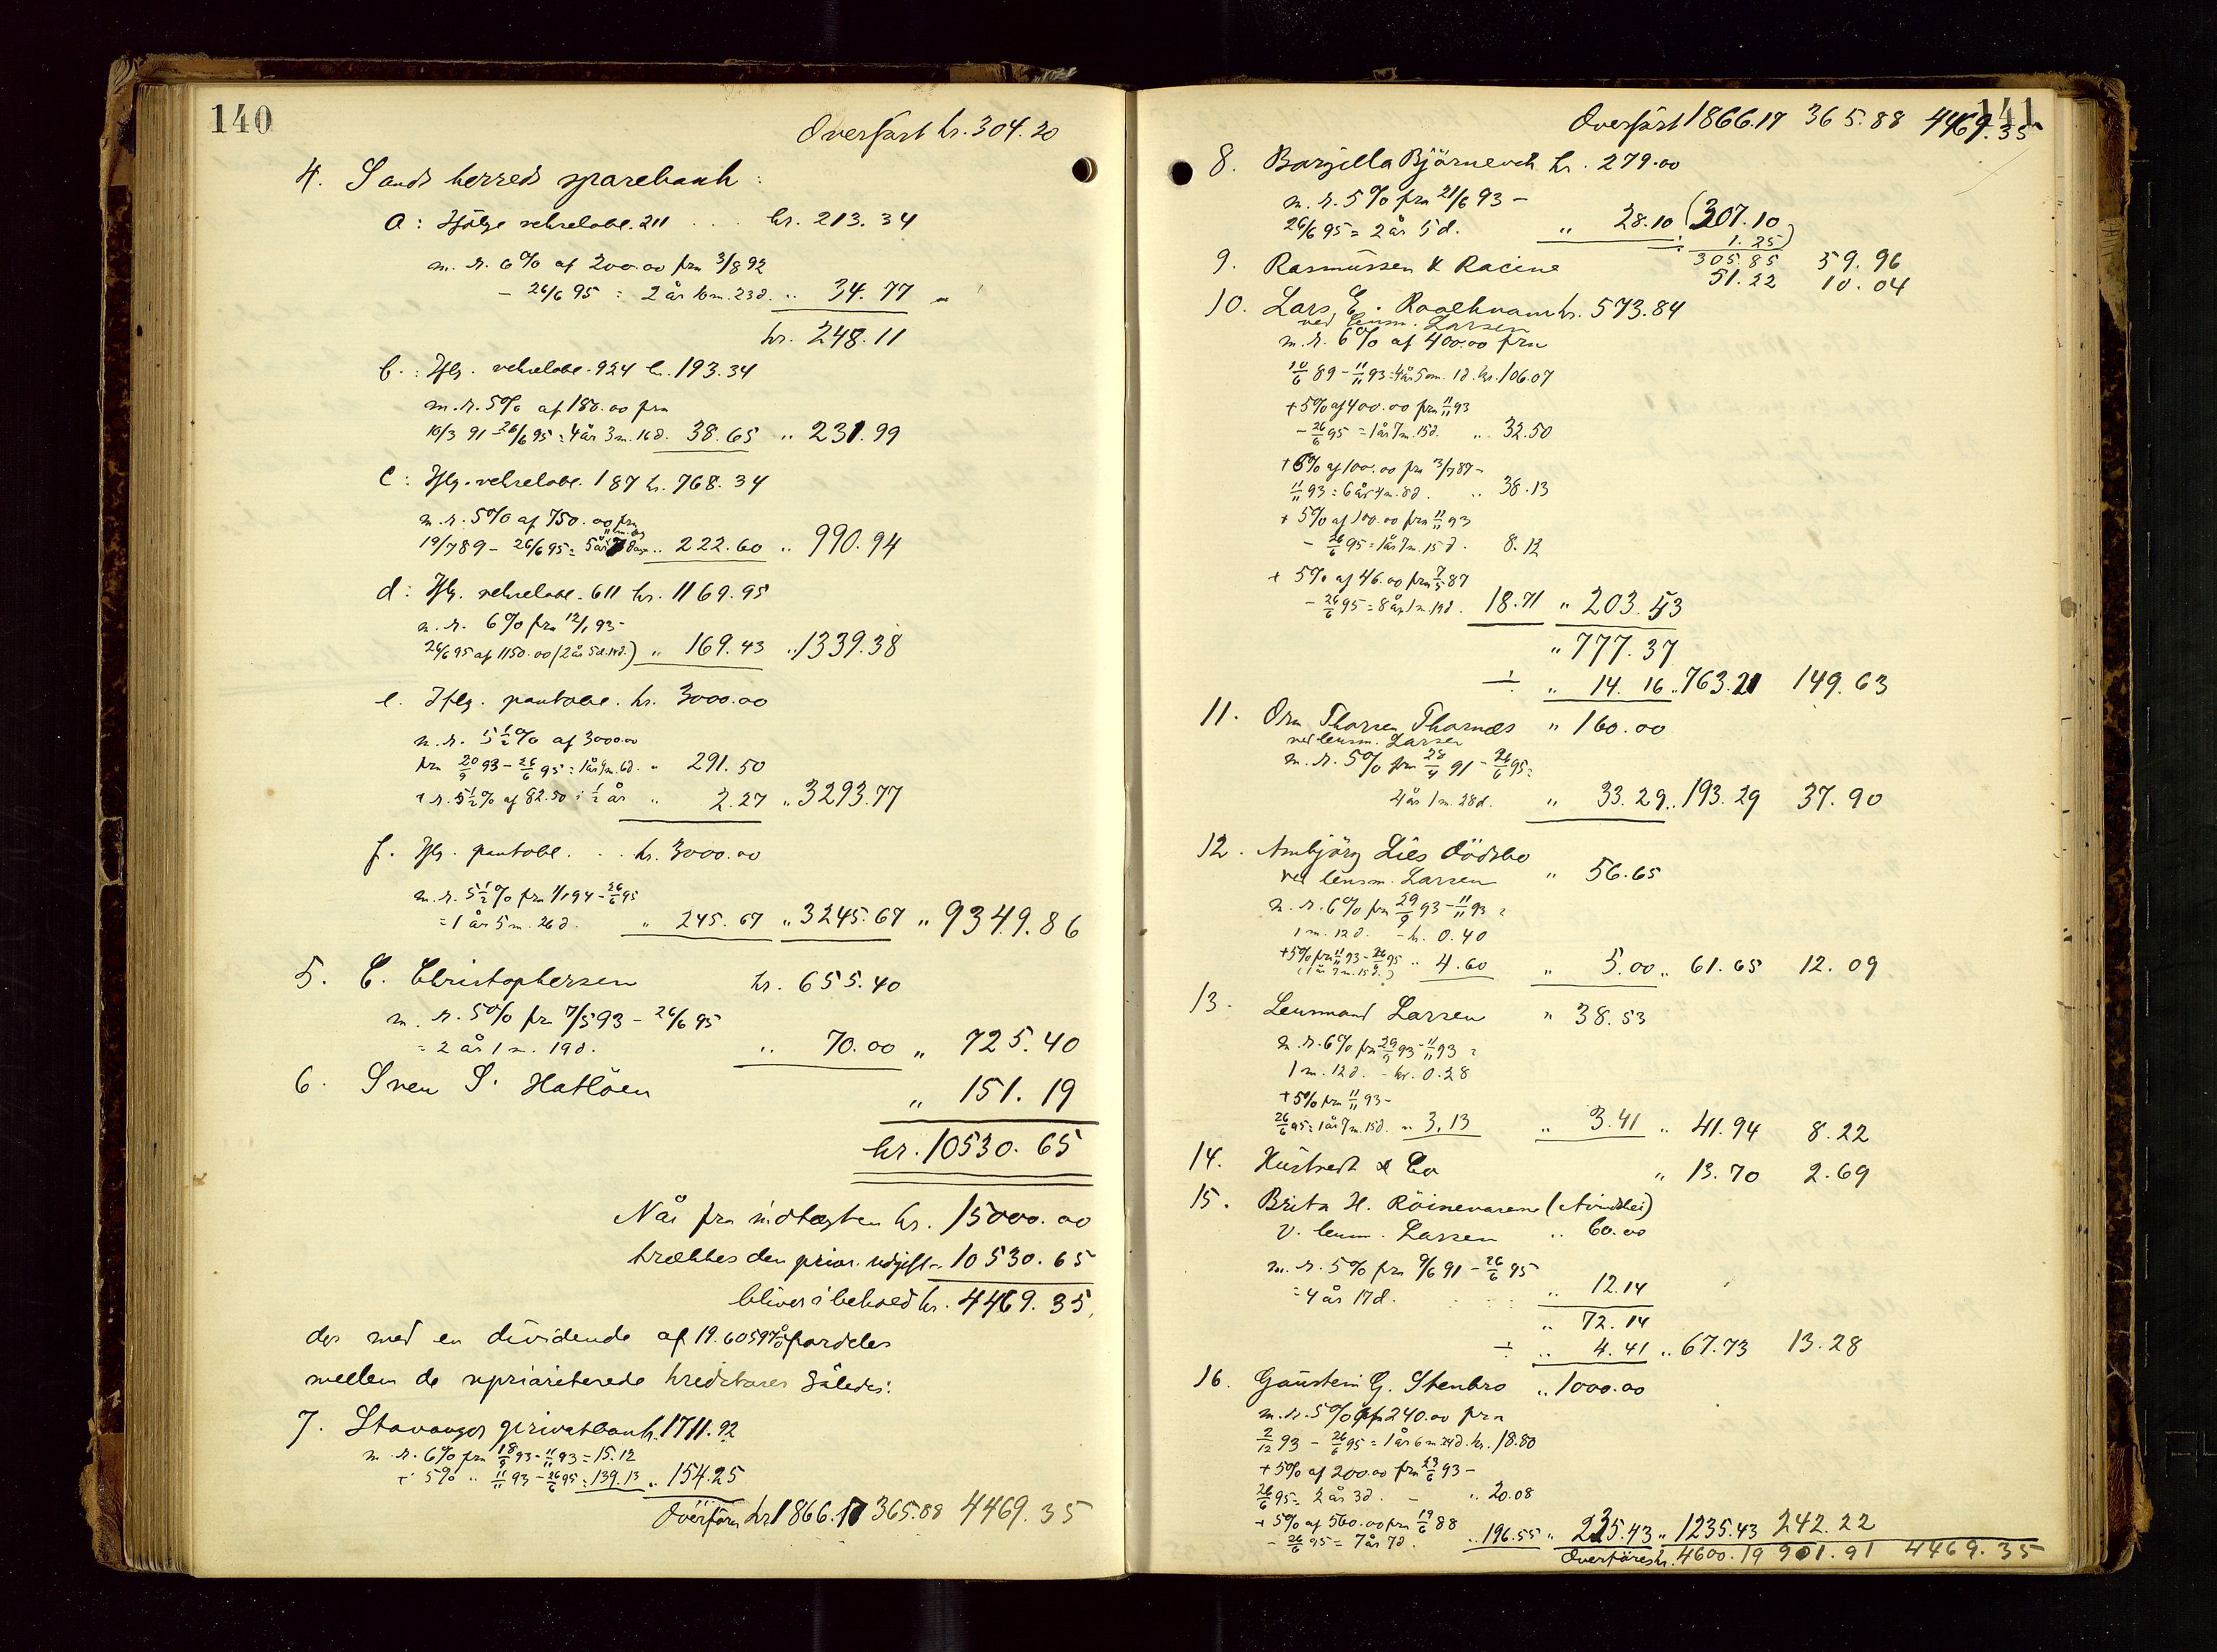 140
Overført kr. 304.20
4. Sands herreds sparebank:
a: Ifølge vekselobl. 211 . . . kr. 213.34
m. r. 6% af 200.00 fra 3/8 92
- 26/6 95 = 2 år 10 m. 23 d. „ 34.77
kr. 248.11
b.: Iflg. vekselobl. 924 kr. 193.34
m. r. 5% af 180.00 fra
10/3 91 - 26/6 95 = 4 år 3 m. 16 d. 38.65 „ 231.99
c: Iflg. vekselobl. 187 kr. 768.34
m. r. 5% af 750.00 fra
19/7 89 - 26/6 95 = 5 år 11 m. 7 dag „ 222.60 „ 990.94
d: Iflg. vekselobl. 611 kr. 1169.95
m. r. 6% fra 12/1 93 -
26/6 95 af 1150.00 (2 år 5 m. 14 d.) „ 169.43 „ 1339.38
e. Iflg. pantobl. kr. 3000.00
m. r. 5 1/2 % af 3000.00
fra 20/9 93 - 26/6 95 = 1 år 9 m. 6 d. „ 291.50
+ r. 5 1/2 % af 82.50 i 1/2 år „ 2.27 „ 3293.77
f. Iflg. pantobl. . . kr. 3000.00
m. r. 5 1/2 % fra 1/1 94 - 26/6 95
= 1 år 5 m. 26 d. „ 245.67 „ 3245.67 „ 9349.86
5. C. Christophersen kr. 655.40
m. r. 5% fra 7/5 93 - 26/6 95
= 2 år 1 m. 19 d. „ 70.00 „ 725.40
6. Sven S. Hatløen „ 151.19
kr. 10530.65
Når fra indtægten kr. 15000.00
trækkes den prior. udgift „ 10530.65
bliver i behold kr. 4469.35,
der med en dividende af 19.6059% fordeles
mellem de upriöriterede kreditorer således:
7. Stavanger privatbank 1711.92
m. r. 6% fra 18/9 93 - 11/11 93 = 15.12
+ 5% „ 11/11 93 - 26/6 95 = 139.13 „ 154.25
Overføres kr 1866.17 365.88 4469.35
141
Overført 1866.17 365.88 4469.35
8. Borgilla Bjørnevek kr. 279.00
m. r. 5% fra 21/6 93 -
26/6 95 = 2 år 5 d. „ 28.10 (307.10
÷ 1.25)
305.85 59.96
9. Rasmussen & Racine 51.22 10.04
10. Lars E. Roaldkvam kr. 573.84
ved lensm. Larsen
m. r. 6% af 400.00 fra
10/6 89 - 11/11 93 = 4 år 5 m. 1 d. kr. 106.07
+ 5% af 400.00 fra 11/11 93
- 26/6 95 = 1 år 7 m. 15 d. „ 32.50
+ 6% af 100.00 fra 3/7 87 -
11/11 93 = 6 år 4 m. 8 d. „ 38.13
+ 5% af 100.00 fra 11/11 93
- 26/6 95 = 1 år 7 m. 15 d. 8.12
+ 5% af 46.00 fra 7/5 87
- 26/6 95 = 8 år 1 m. 19 d. 18.71 „ 203.53
„ 777.37
÷ „ 14.16 „ 763.21 149.63
11. Orm Thorsen Thornæs „ 160.00
ved lensm. Larsen
m. r. 5% fra 28/4 91 - 26/6 95 =
4 år 1 m. 28 d. „ 33.29 „ 193.29 37.90
12. Ambjørg Lies dödsbo
ved lensm. Larsen „ 56.65
m. r. 6% fra 29/9 93 - 11/11 93 =
1 m. 12 d. - kr. 0.40
+ 5% fra 11/11 93 - 26/6 95 „ 4.60 „ 5.00 „ 61.65 12.09
(1 år 7 m. 15 d.)
13. Lensmand Larsen „ 38.53
m. r. 6% fra 29/9 93 - 11/11 93 =
1 m. 12 d. - kr. 0.28
+ 5% fra 11/11 93 -
26/6 95 = 1 år 7 m. 15 d. „ 3.13 „ 3.41 „ 41.94 8.22
14. Hustvedt & Co „ 13.70 2.69
15. Brita H. Röinevarene
v. lensm. Larsen „ 60.00
m. r. 5% fra 9/6 91 - 26/6 95
= 4 år 17 d. „ 12.14
„ 72.14
÷ „ 4.41 „ 67.73 13.28
16. Gaustein G. Stenbro „ 1000.00
m. r. 5% af 240.00 fra
2/12 93 - 26/6 95 = 1 år 6 m 24 d. kr. 18.80
+ 5% af 200.00 fra 23/6 93 -
26/6 95 = 2 år 3 d. - „ 20.08
+ 5% af 560.00 fra 19/6 88
- 26/6 95 = 7 år 7 d. „ 196.55 „ 235.43 „ 1235.43 242.22
Overføres kr. 4600.19 901.91 4469.35